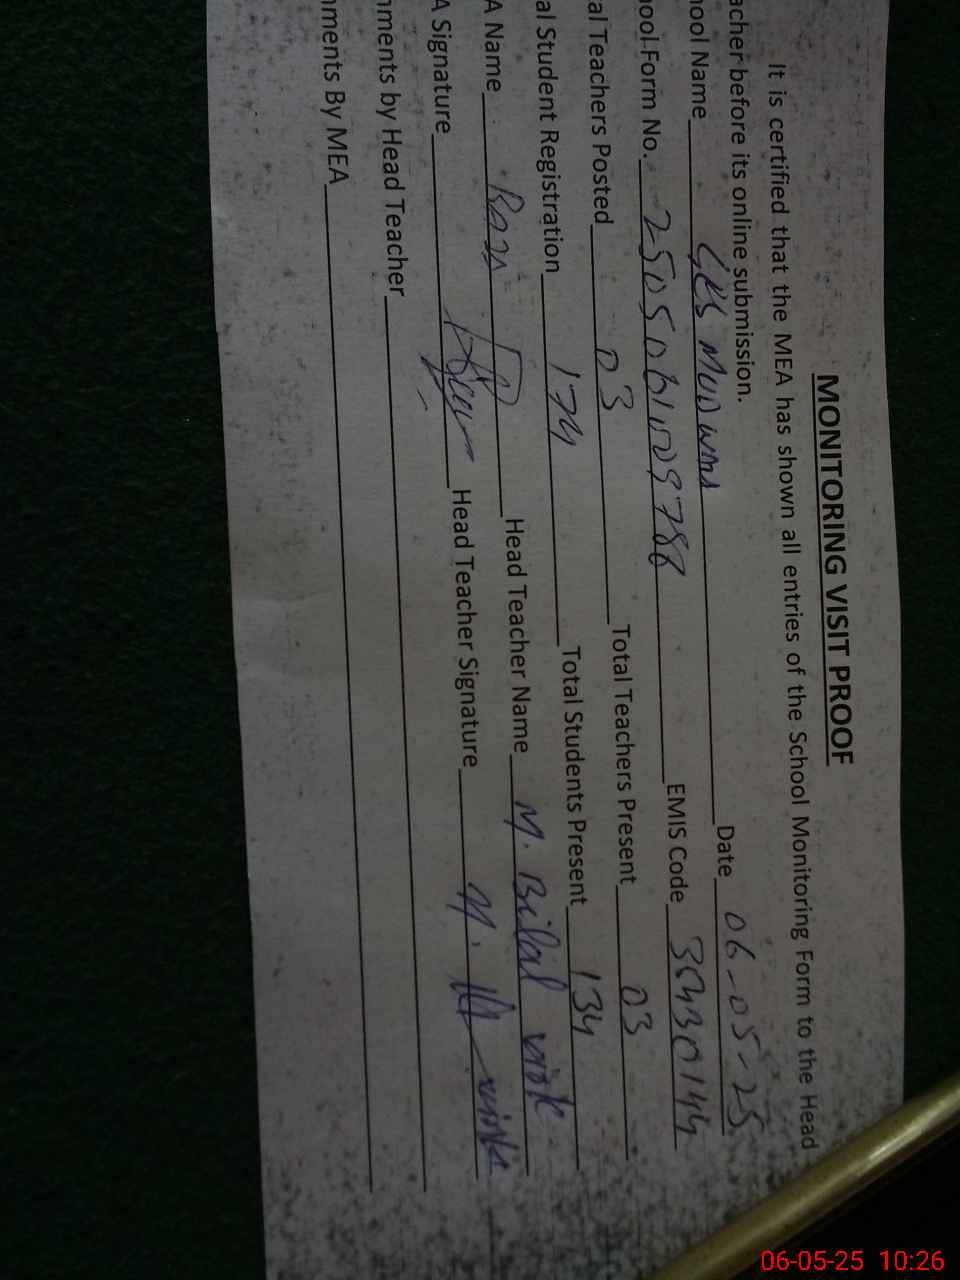 MONITORING VISIT PROOF
It is certified that the MEA has shown all entries of the School Monitoring Form to the Head
acher before its online submission.
hool Name Date 06-05-25
hool Form No. 2505061109788 EMIS Code 35430144
al Teachers Posted 03 Total Teachers Present 03
al Student Registration 174 Total Students Present 134
A Name Head Teacher Name M. Bilal virk
A Signature Head Teacher Signature M. virk
nments by Head Teacher
nments By MEA
06-05-25 10:26